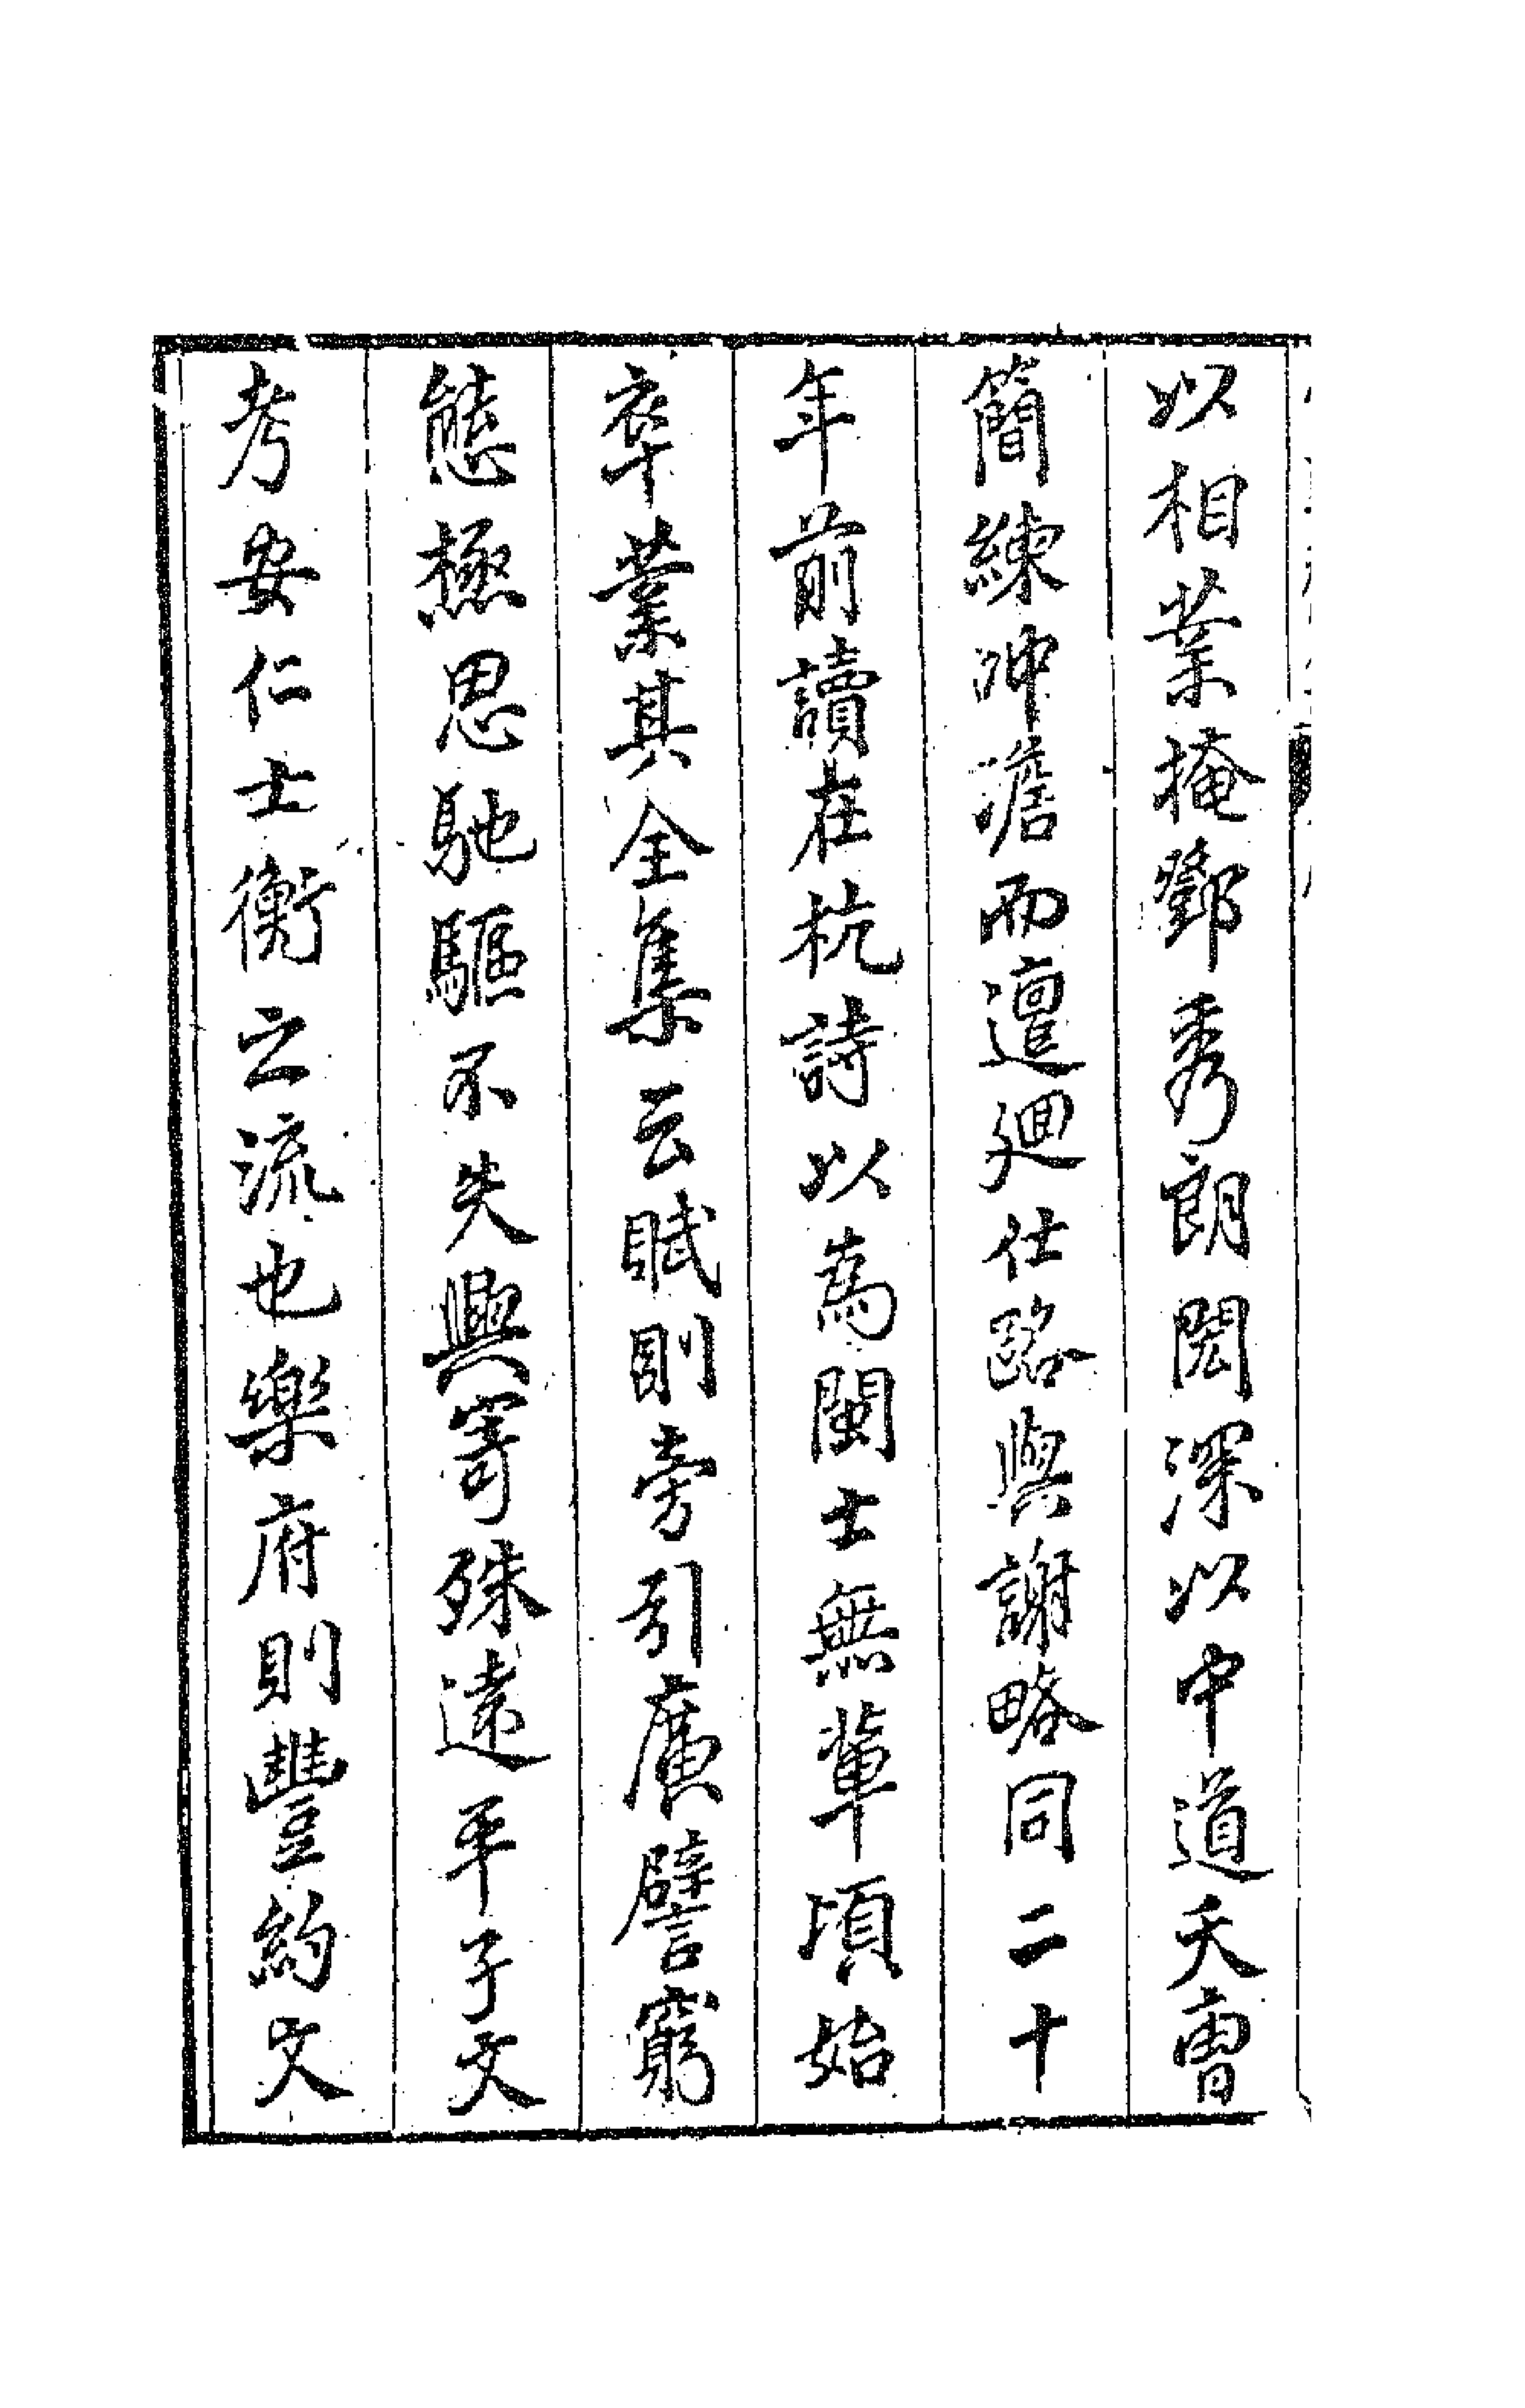 以相業掩鄧秀朗閎深以中道夭曹
簡練冲澹而邅廻仕路與謝略同二十
年前讀在杭詩以為閩士無輩頃始
卒業其全集云賦則旁引廣譬窮
態極思馳驅不失興寄殊遠平子文
考安仁士衡之流也樂府則豐約文